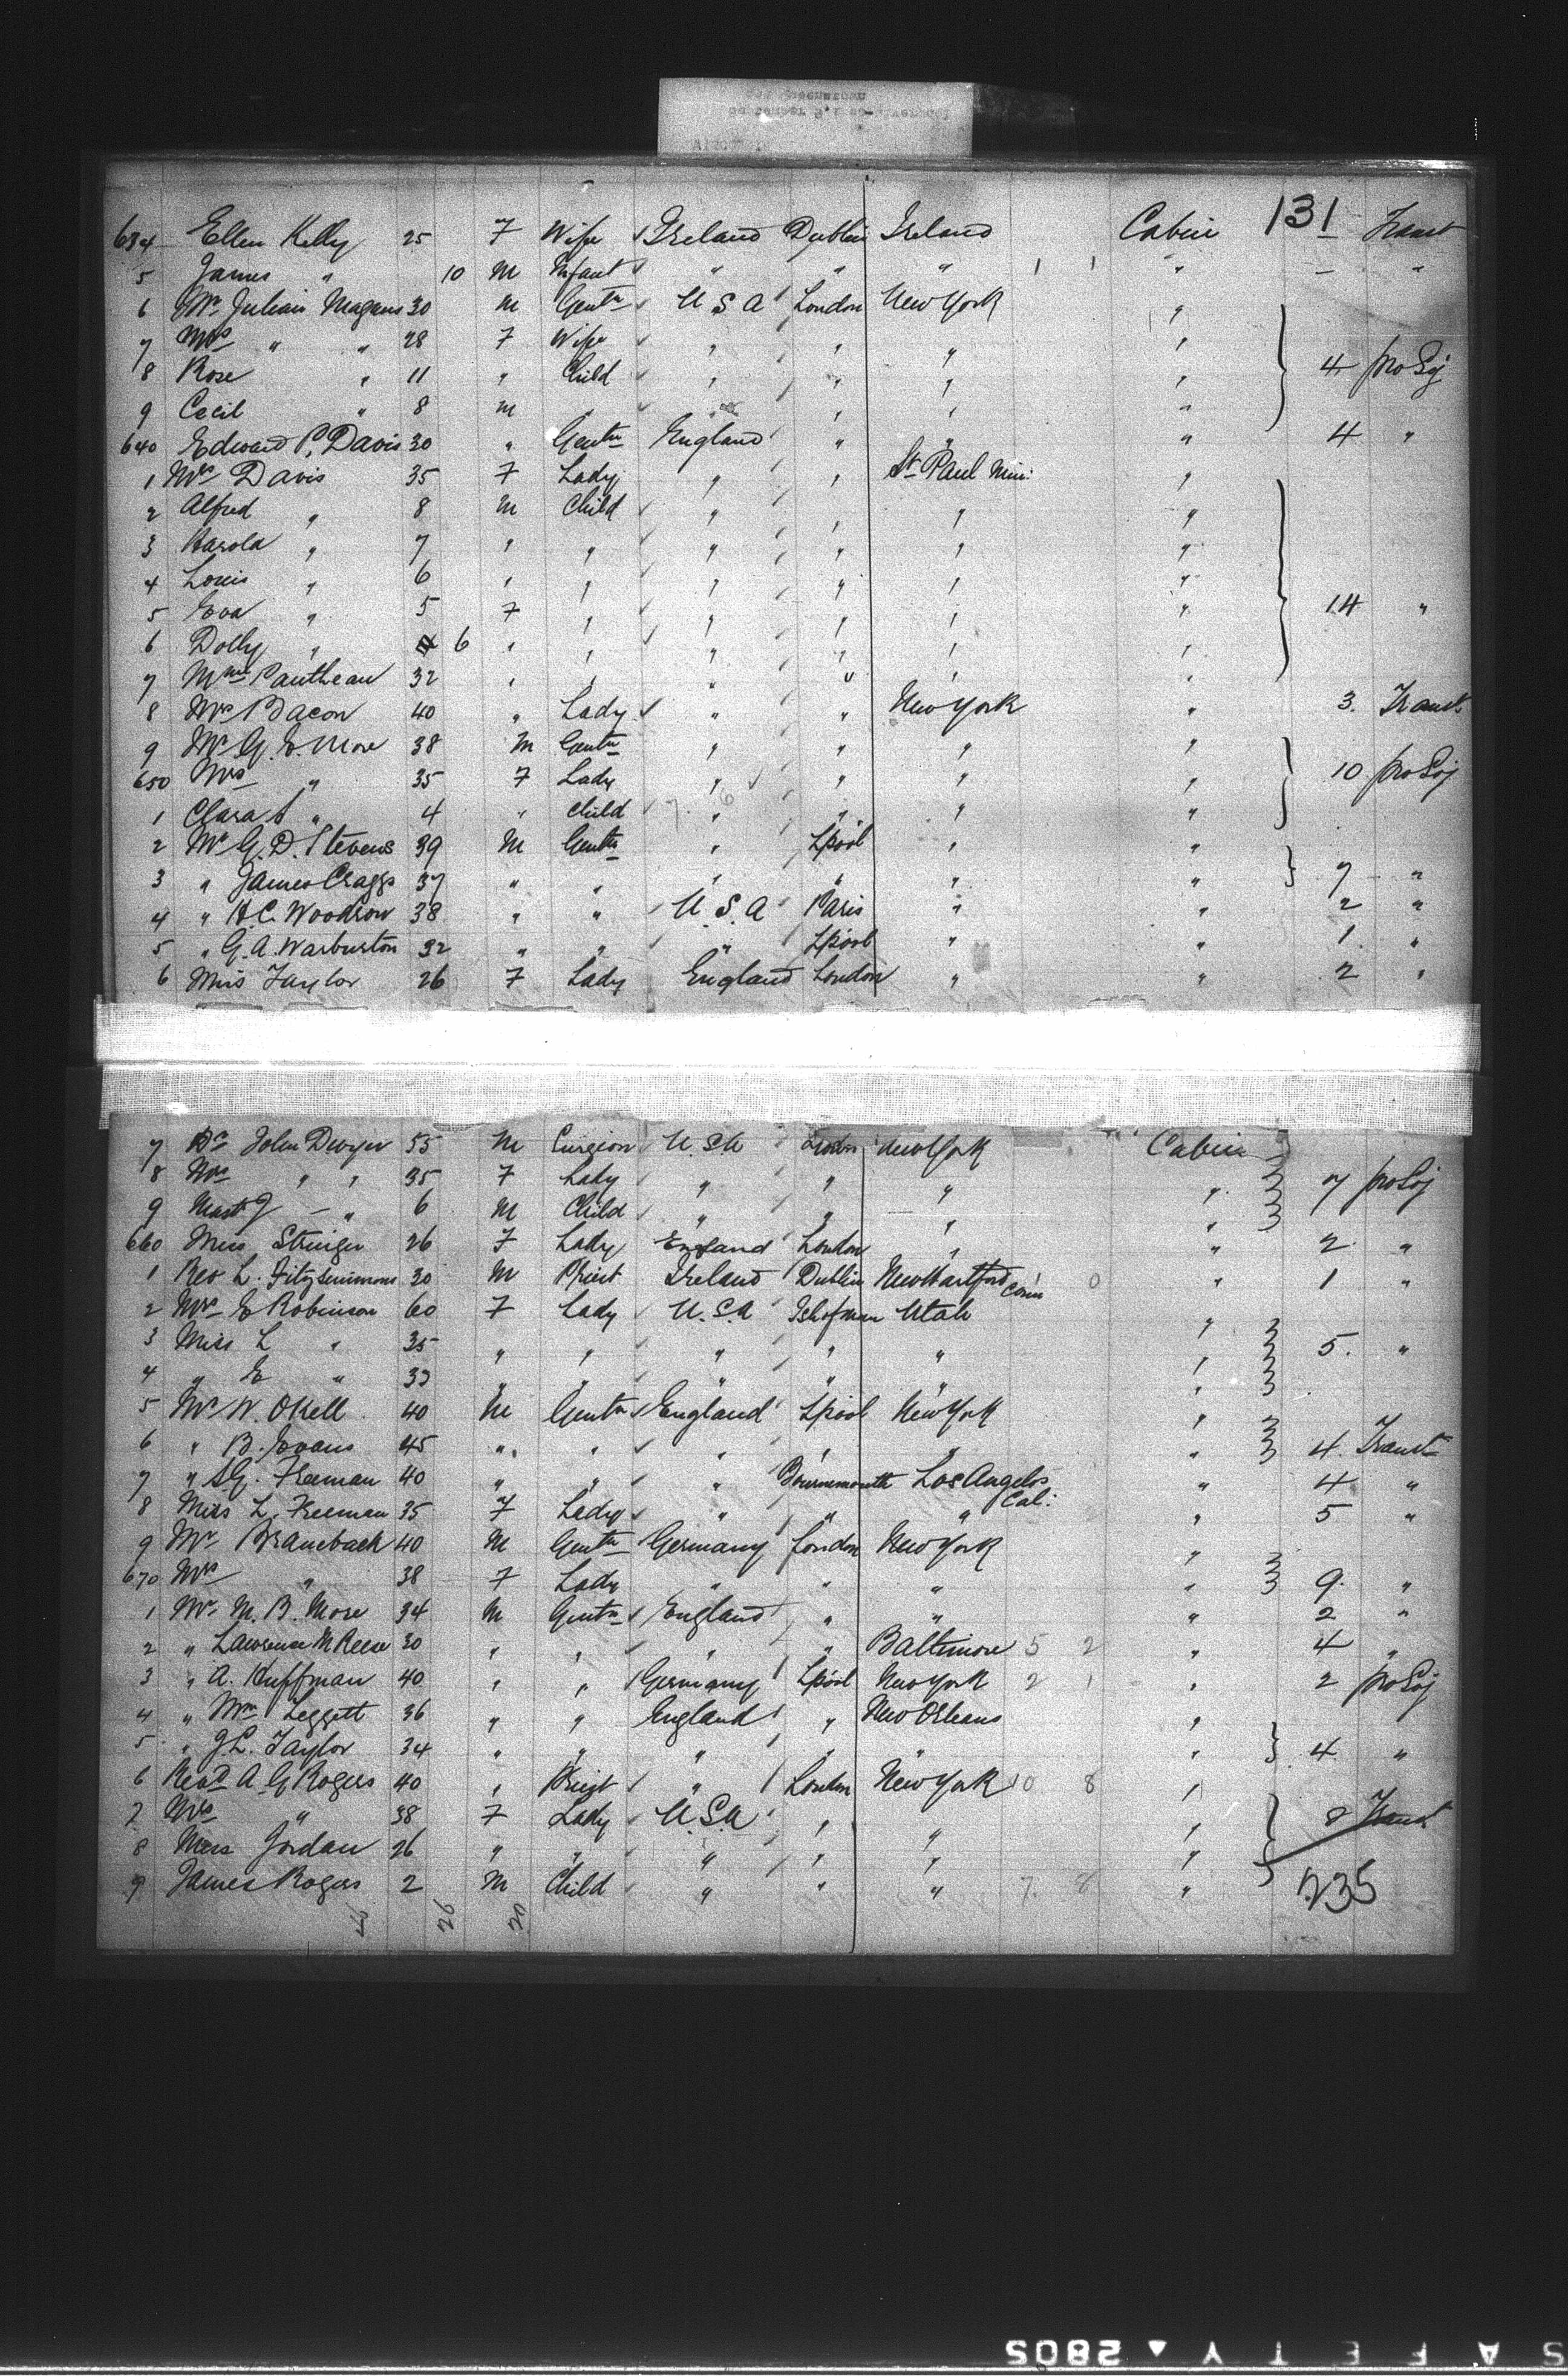 131
634 Ellen Kelly 25 F Wife Ireland Dublin Ireland Cabin Transt
5 James " 10 M Infant " " " 1 1 " — "
6 Mr Julian Magnus 30 M Gentn U S A London New York "
7 Mrs " " 28 F Wife " " " "
8 Rose " 11 " Child " " " " 4 pro Soj
9 Cecil " 8 M " " " " "
640 Edward P. Davis 30 " Gentn England " " " 4 "
1 Mrs Davis 35 F Lady " " St Paul Min: "
2 Alfred " 8 M Child " " " "
3 Harold " 7 " " " " " "
4 Louis " 6 " " " " " "
5 Eva " 5 F " " " " " 14 "
6 Dolly " 6 " " " " " "
7 Mme Pautheau 32 " " " " " "
8 Mrs Bacon 40 " Lady " " New York " 3. Transt
9 Mr G. E. More 38 M Gentn " " " "
650 Mrs " 35 F Lady " " " " 10 pro Soj
1 Clara " 4 " Child " " " "
2 Mr G. D. Stevens 39 M Gentn " Lpool " "
3 " James Craggs 37 " " " " " " 7 "
4 " H. C. Woodrow 38 " " U. S. A Paris " " 2 "
5 " G. A. Warburton 32 " " " Lpool " " 1. "
6 Miss Taylor 26 F Lady England London " " 2 "
7 Dr John Dwyer 55 M Surgeon U. S. A London New York Cabin
8 Mrs " " 35 F Lady " " " " 7 pro Soj
9 Mast J — " 6 M Child " " " "
660 Miss Stringer 26 F Lady England London " " 2 "
1 Rev L. Fitzsimmons 30 M Priest Ireland Dublin New Hartford Conn 0 " 1 "
2 Mrs E Robinson 60 F Lady U. S. A Isle of man Utah "
3 Miss L " 35 " " " " " " 5. "
4 " E " 33 " " " " " "
5 Mr W. Okell 40 M Gentn England Lpool New York "
6 " B. Evans 45 " " " " " " 4. Transt
7 " S. G. Freeman 40 " " " Bournemouth Los Angelos Cal: " 4 "
8 Miss L. Freeman 35 F Lady " " " " 5 "
9 Mr Braueback 40 M Gentn Germany London New York "
670 Mrs " 38 F Lady " " " " 9. "
1 Mr M. B. More 34 M Gentn England " " " 2 "
2 " Lawrence M Reese 30 " " " " Baltimore 5 2 " 4 "
3 " A. Huffman 40 " " Germany Lpool New York 2 1 " 2 pro Soj
4 " Wm Leggett 36 " " England " New Orleans "
5 " J L. Taylor 34 " " " " " " 4 "
6 Revd A G Rogers 40 " Priest " London New York 10 8 "
7 Mrs " 38 F Lady U. S. A " " " 8 Transt
8 Miss Jordan 26 " " " " " "
9 James Rogers 2 M Child " " " 7. 8 "
235
26 20
SAFETY ▲ 2805